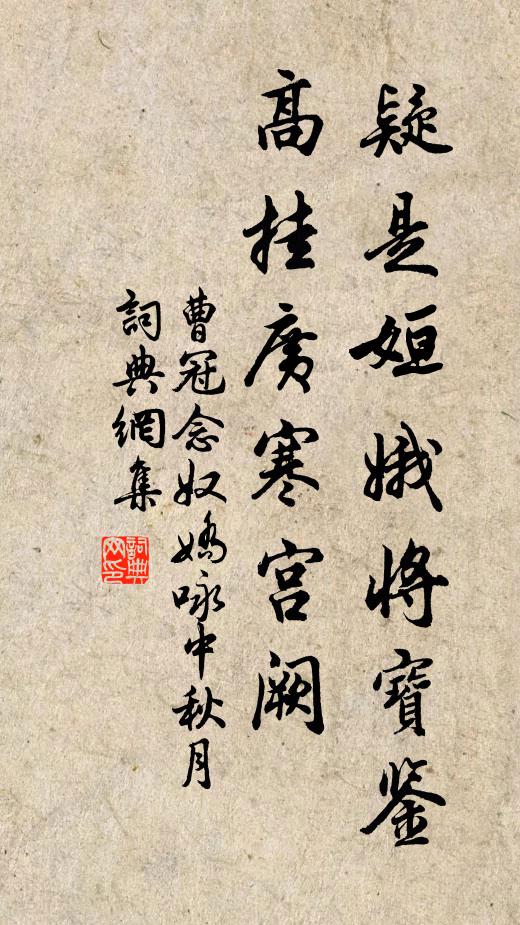 疑是姮娥將寶鉴
高挂廣寒宮闕
曹冠念奴嬌咏中秋月
詞典網集
詞典网印